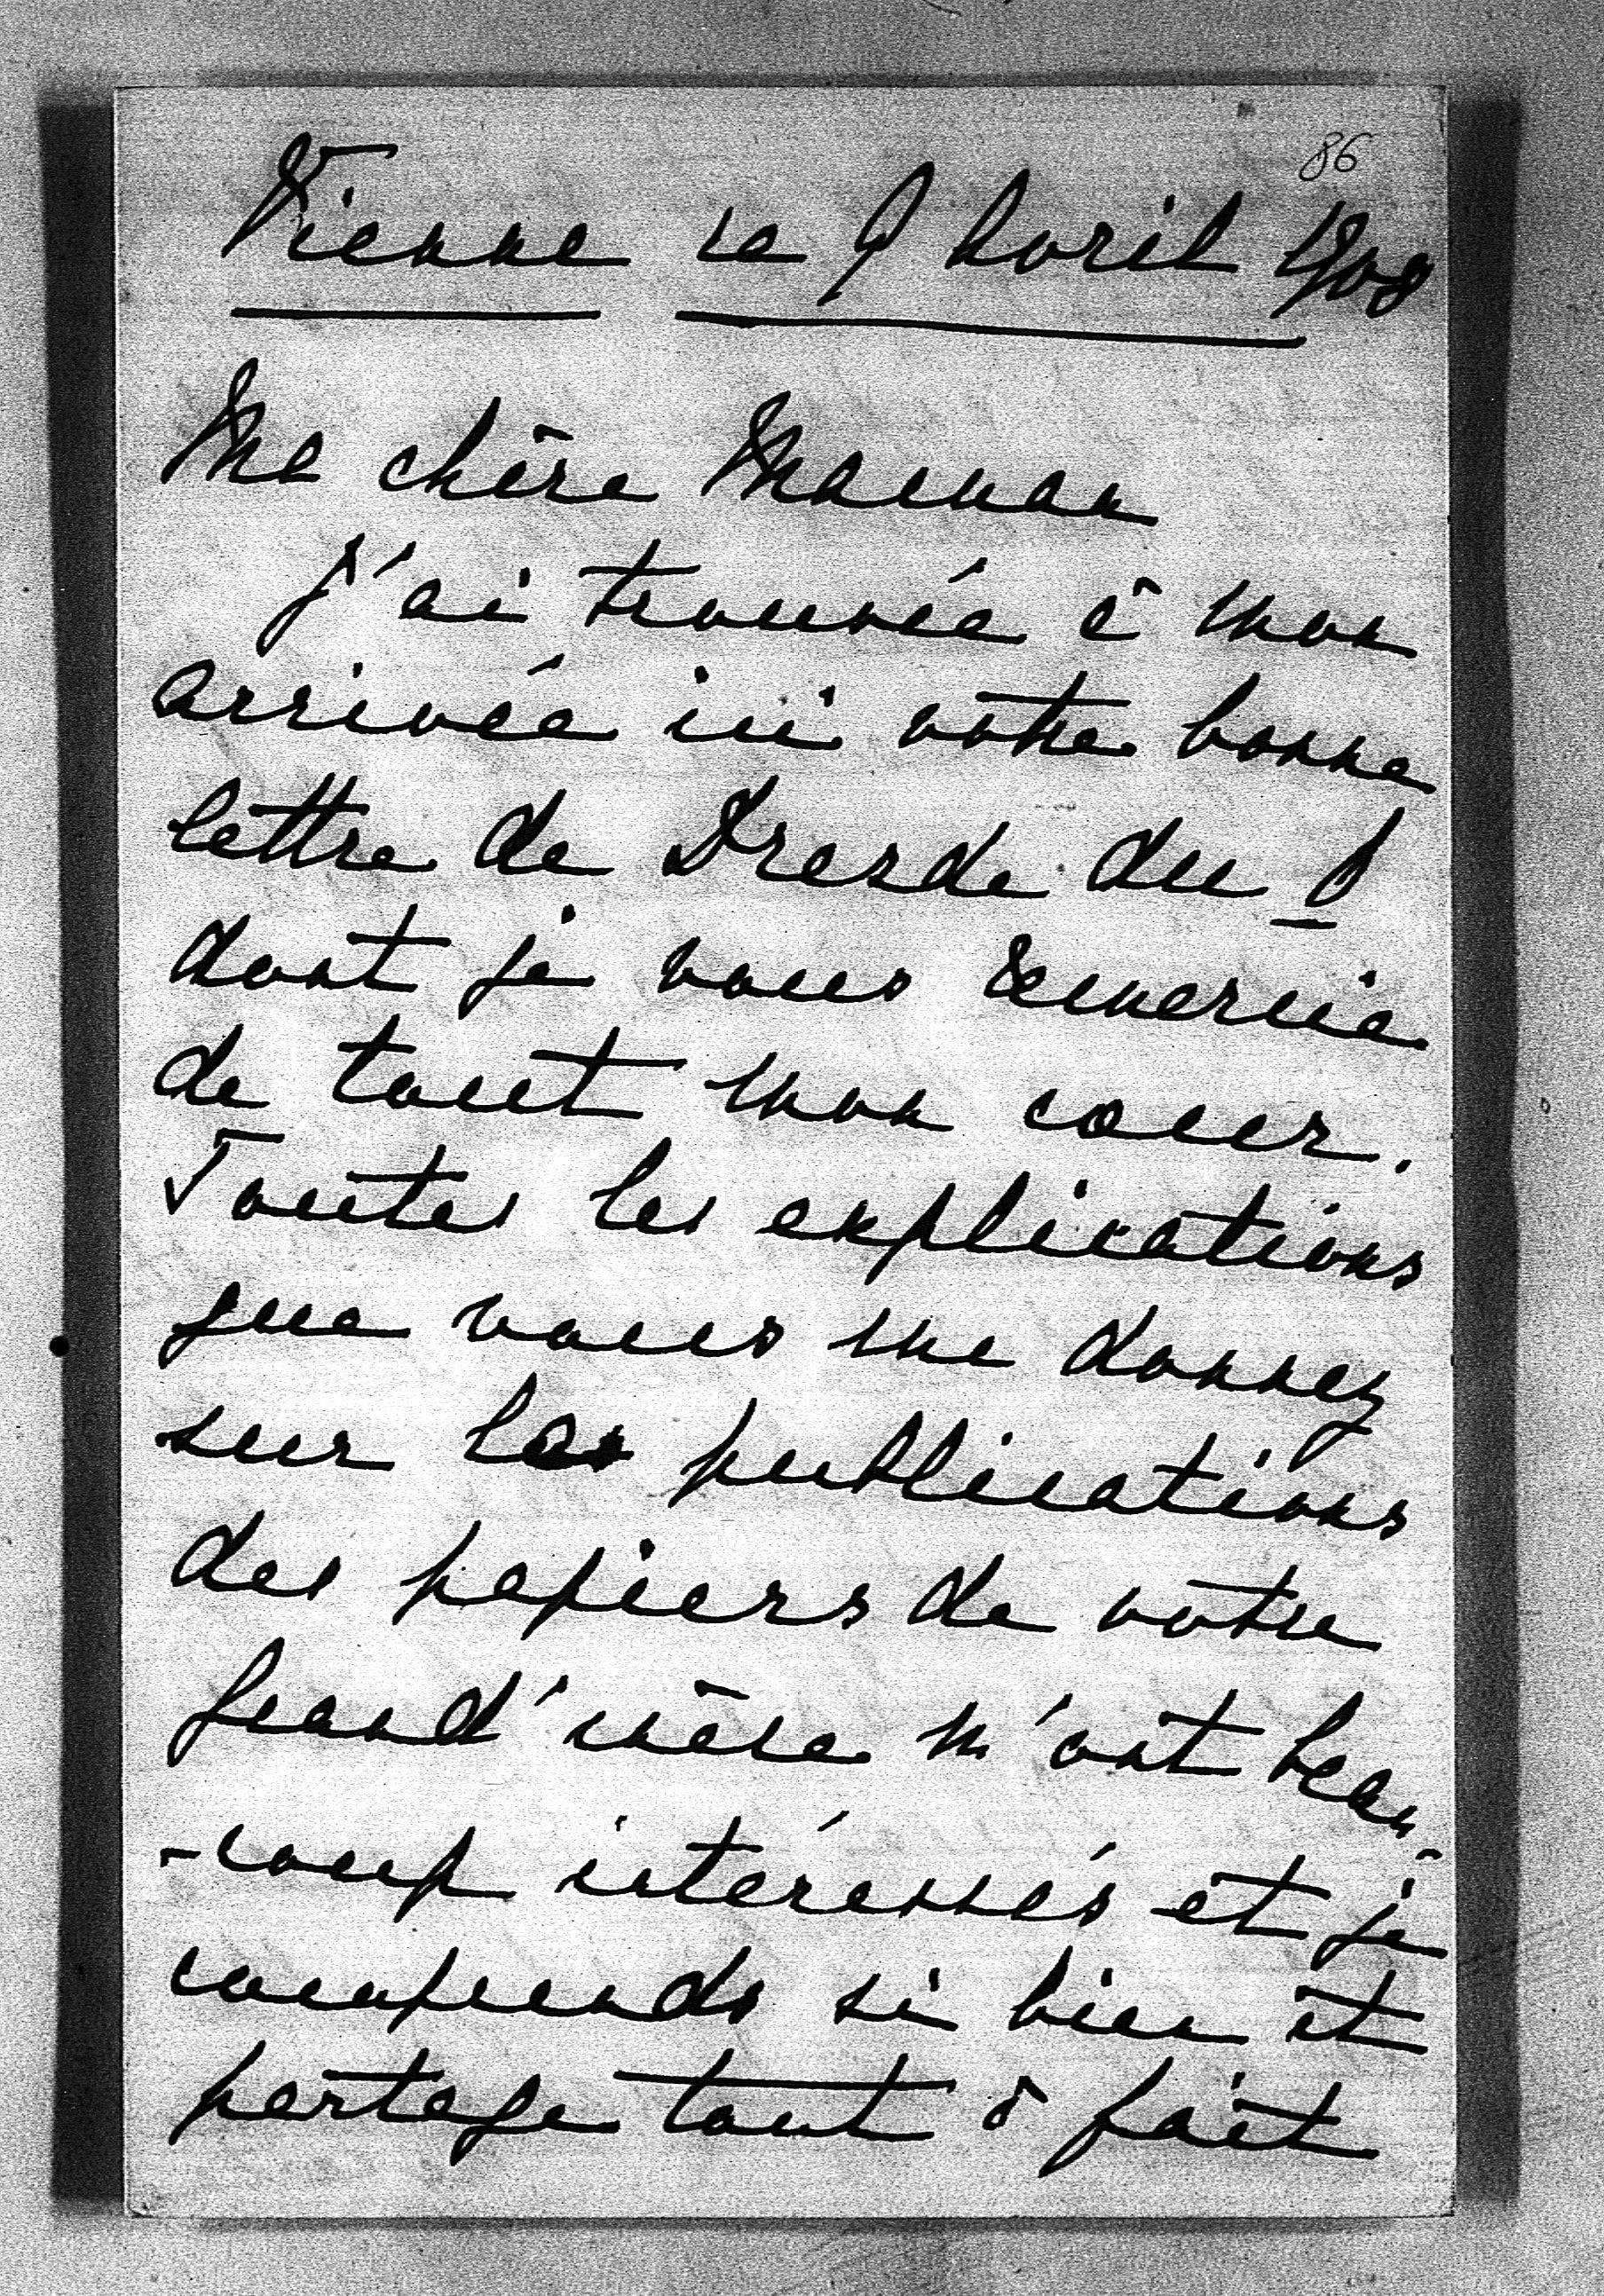 86
Vienne le 9 Avril 1908
Ma chère Maman
J'ai trouvée à mon
arrivée ici votre bonne
lettre de Dresde du 8
dont je vous remercie
de tout mon coeur.
Toutes les explications
que vous me donnez
sur les publications
des papiers de votre
grand'mère m'ont beau-
-coup intéressés et je
comprends si bien et
partage tout à fait